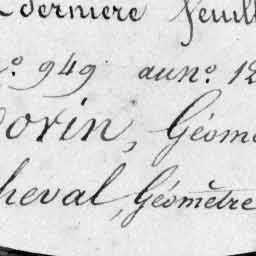 derniere feuill
o. 949 au no. 12
orin, Géom
heval, Géomètre